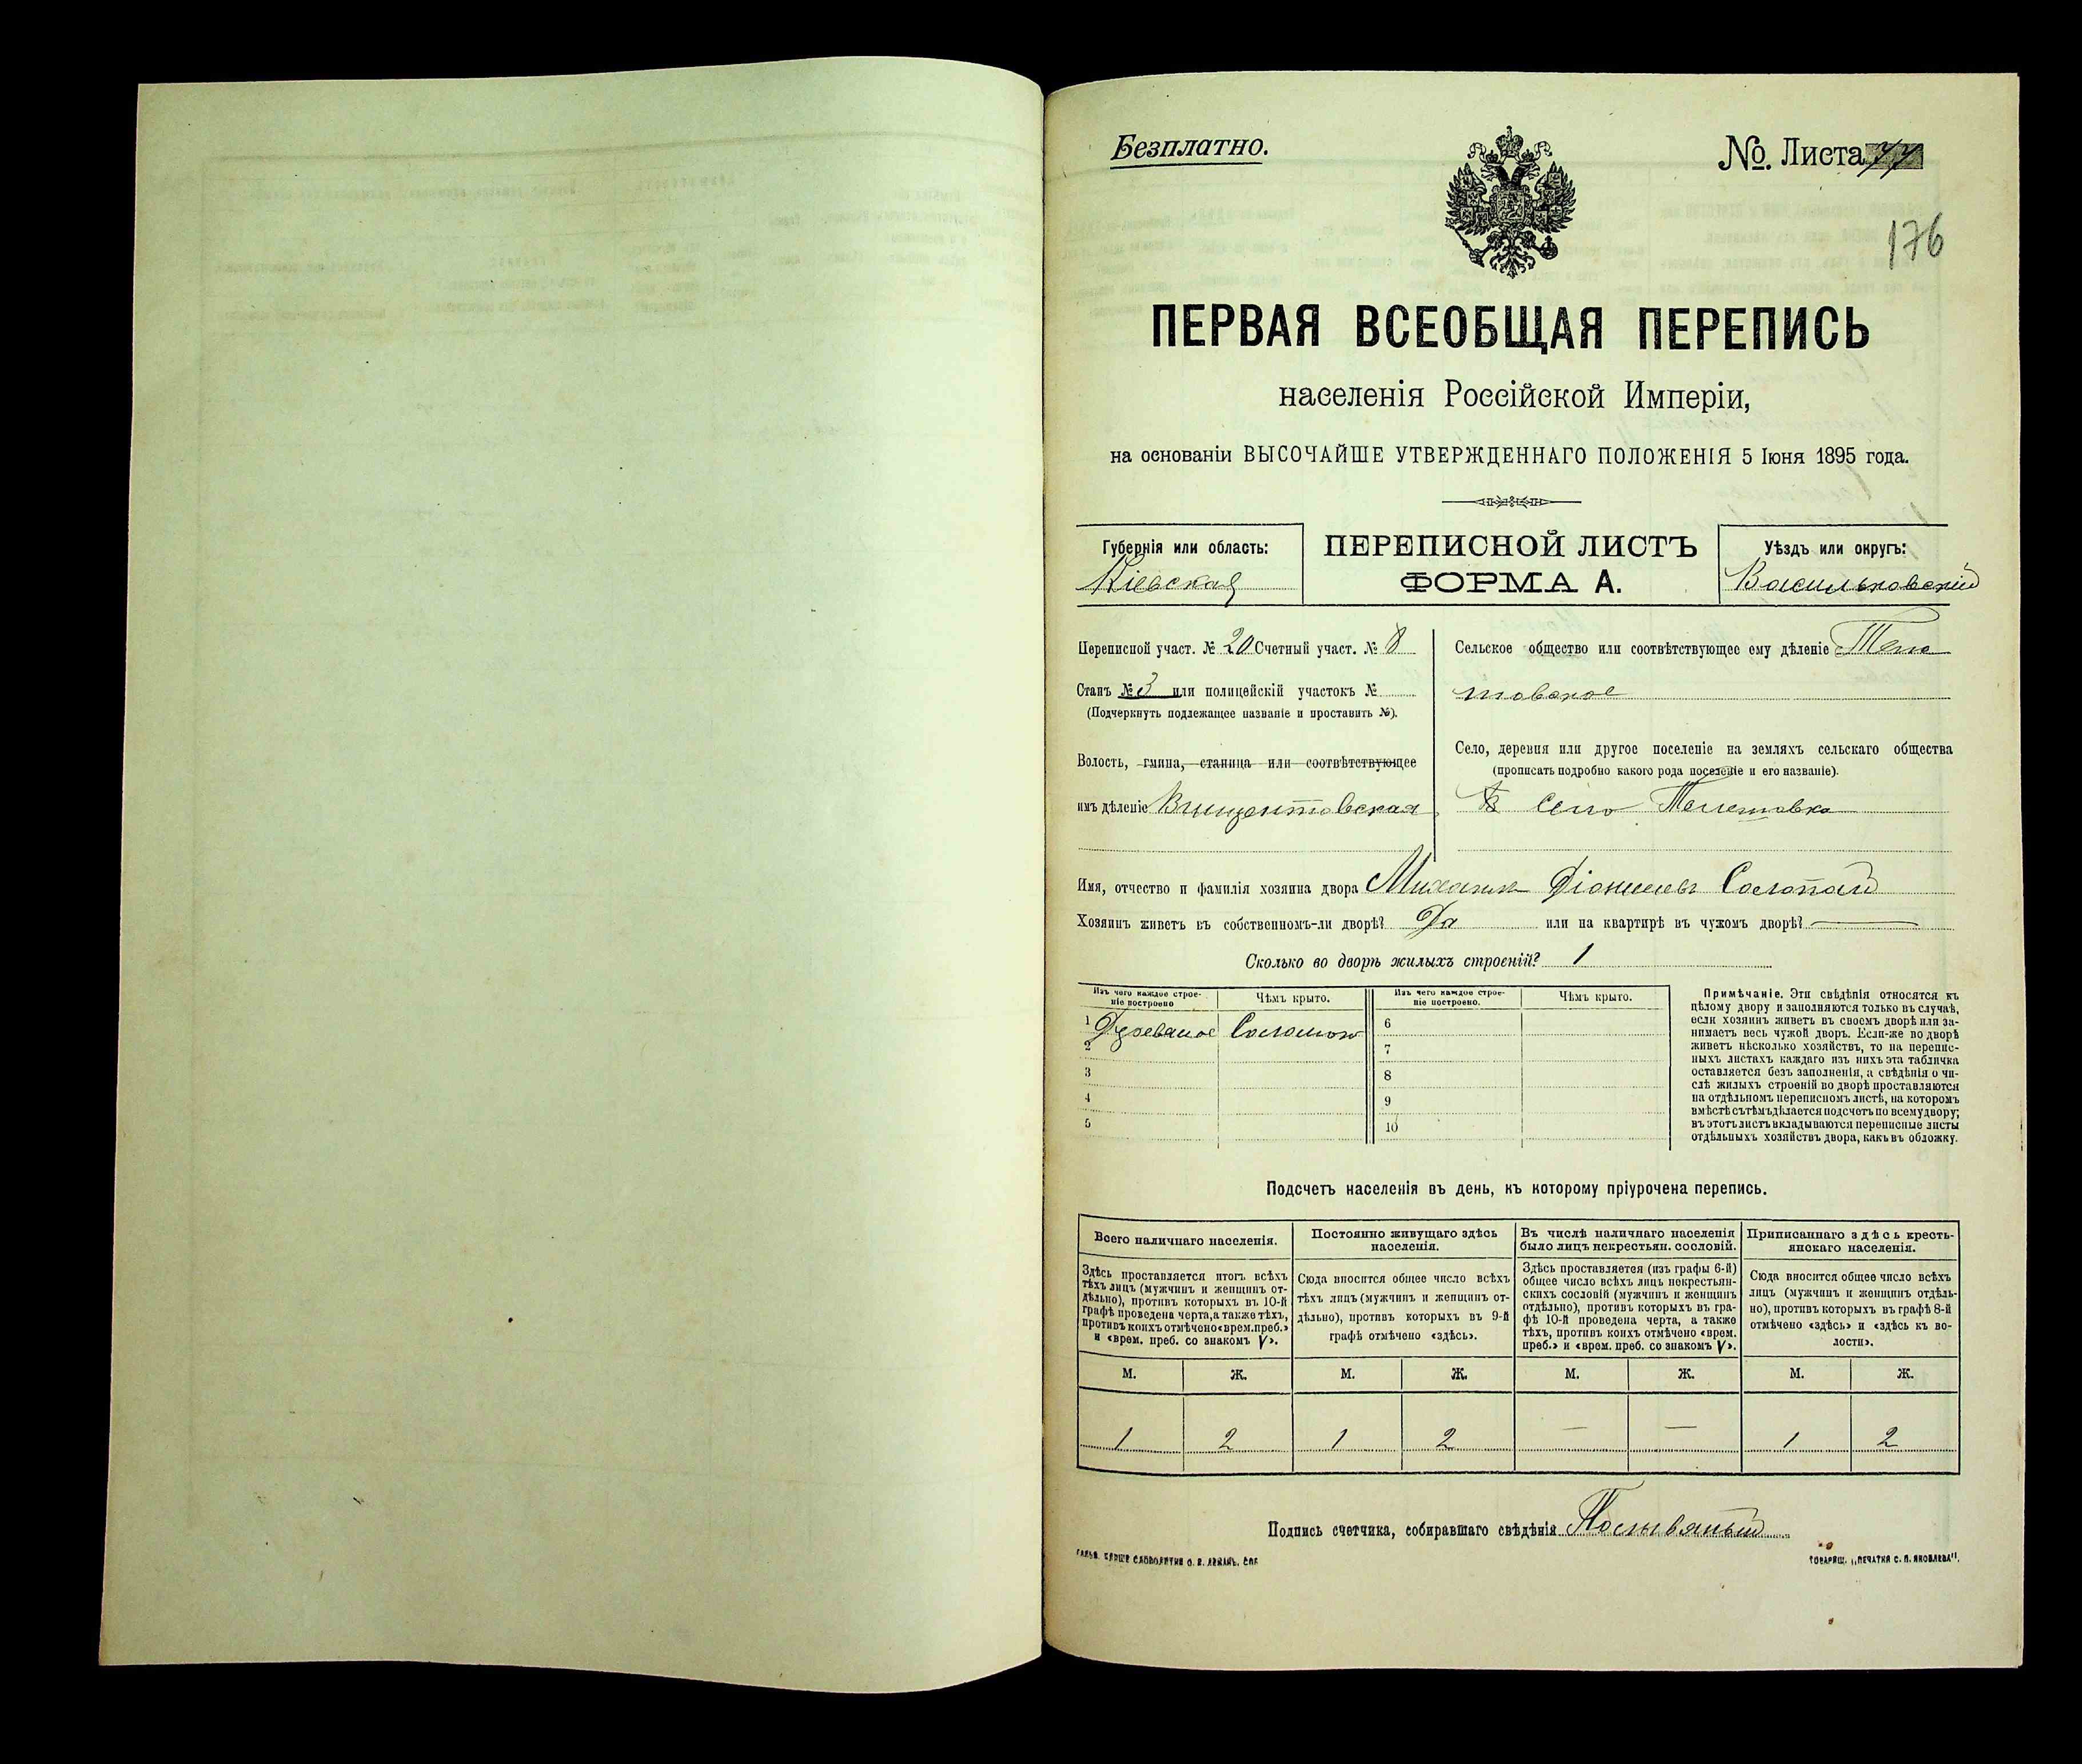 Безплатно.
№. Листа 77
176
ПЕРВАЯ ВСЕОБЩАЯ ПЕРЕПИСЬ
населенія Россійской Имперіи,
на основаніи ВЫСОЧАЙШЕ УТВЕРЖДЕННАГО ПОЛОЖЕНІЯ 5 Іюня 1895 года.
Губернія или область:
Кіевская
ПЕРЕПИСНОЙ ЛИСТЪ
ФОРМА А.
Уѣздъ или округъ:
Васильковскій
Переписной участ. № 20 Счетный участ. № 8
Станъ № 3 или полицейскій участокъ №
(Подчеркнуть подлежащее названіе и проставить №).
Волость, гмина, станица или соотвѣтствующее
имъ дѣленіе Винцентовская
Сельское общество или соотвѣтствующее ему дѣленіе Теле
товское
Село, деревня или другое поселеніе на земляхъ сельскаго общества
(прописать подробно какого рода поселеніе и его названіе).
село Телешовка
Имя, отчество и фамилія хозяина двора Михаилъ Діонисіевъ Солопай
Хозяинъ живетъ въ собственномъ-ли дворѣ? Да или на квартирѣ въ чужомъ дворѣ? —
Сколько во дворѣ жилыхъ строеній? 1
Изъ чего каждое строе-
ніе построено
Чѣмъ крыто.
Изъ чего каждое строе-
ніе построено.
Чѣмъ крыто.
1 Деревяное Соломою
2
3
4
5
6
7
8
9
10
Примѣчаніе. Эти свѣдѣнія относятся къ
цѣлому двору и заполняются только въ случаѣ,
если хозяинъ живетъ въ своемъ дворѣ или за-
нимаетъ весь чужой дворъ. Если-же во дворѣ
живетъ нѣсколько хозяйствъ, то на перепис-
ныхъ листахъ каждаго изъ нихъ эта табличка
оставляется безъ заполненія, а свѣдѣнія о чи-
слѣ жилыхъ строеній во дворѣ проставляются
на отдѣльномъ переписномъ листѣ, на которомъ
вмѣстѣ съ тѣмъ дѣлается подсчетъ по всему двору;
въ этотъ листъ вкладываются переписные листы
отдѣльныхъ хозяйствъ двора, какъ въ обложку.
Подсчетъ населенія въ день, къ которому пріурочена перепись.
Всего наличнаго населенія.
Здѣсь проставляется итогъ всѣхъ
тѣхъ лицъ (мужчинъ и женщинъ от-
дѣльно), противъ которыхъ въ 10-й
графѣ проведена черта, а также тѣхъ,
противъ коихъ отмѣчено «врем. преб.»
и «врем. преб. со знакомъ V».
Постоянно живущаго здѣсь
населенія.
Сюда вносится общее число всѣхъ
тѣхъ лицъ (мужчинъ и женщинъ от-
дѣльно), противъ которыхъ въ 9-й
графѣ отмѣчено «здѣсь».
Въ числѣ наличнаго населенія
было лицъ некрестьян. сословій.
Здѣсь проставляется (изъ графы 6-й)
общее число всѣхъ лицъ некрестьян-
скихъ сословій (мужчинъ и женщинъ
отдѣльно), противъ которыхъ въ гра-
фѣ 10-й проведена черта, а также
тѣхъ, противъ коихъ отмѣчено «врем.
преб.» и «врем. преб. со знакомъ V».
Приписаннаго здѣсь кресть-
янскаго населенія.
Сюда вносится общее число всѣхъ
лицъ (мужчинъ и женщинъ отдѣль-
но), противъ которыхъ въ графѣ 8-й
отмѣчено «здѣсь» и «здѣсь къ во-
лости».
М. Ж. М. Ж. М. Ж. М. Ж.
1 2 1 2 — — 1 2
Подпись счетчика, собиравшаго свѣдѣнія
СЛОВОЛИТНЯ О. И. ЛЕМАНЪ. СПБ.
ТОВАРИЩ. „ПЕЧАТНЯ С. П. ЯКОВЛЕВА".